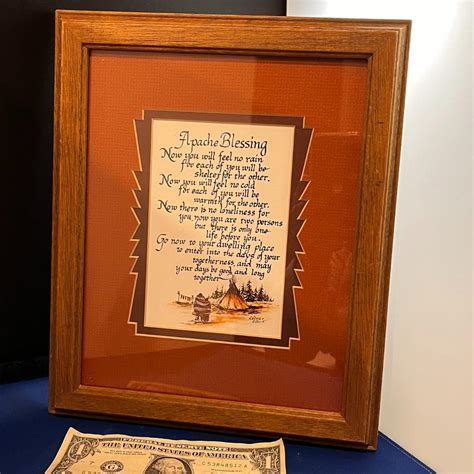 Apache Blessing
Now you will feel no rain
for each of you will be
shelter for the other.
Now you will feel no cold
for each of you will be
warmth for the other.
Now there is no loneliness for
you, now you are two persons
but there is only one
life before you.
Go now to your dwelling place
to enter into the days of your
togetherness, and may
your days be good and long
together
FEDERAL RESERVE NOTE
THE UNITED STATES OF AMERICA